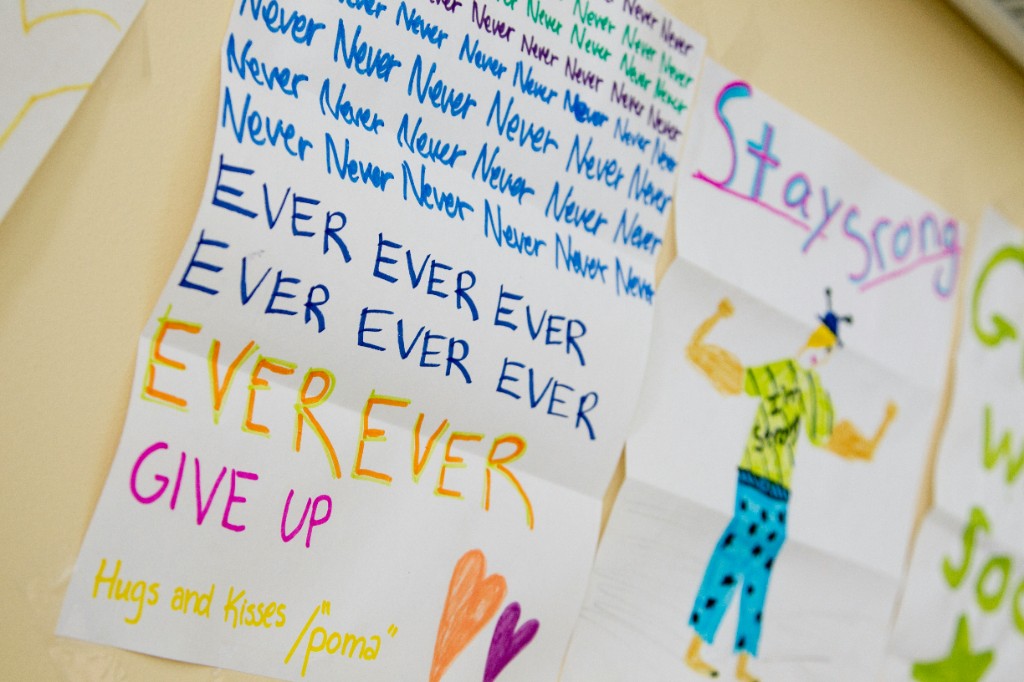 Never Never
Never Never Never
Never Never Never Never
Never Never Never Never Never Never
Never Never Never Never Never Never Never
Never Never Never Never Never Never
Never Never Never Never Never Never
Never Never Never Never Never Never
EVER EVER EVER
EVER EVER EVER
EVER EVER
GIVE UP
Hugs and Kisses /"poma"
Stay srong
I'm
strong